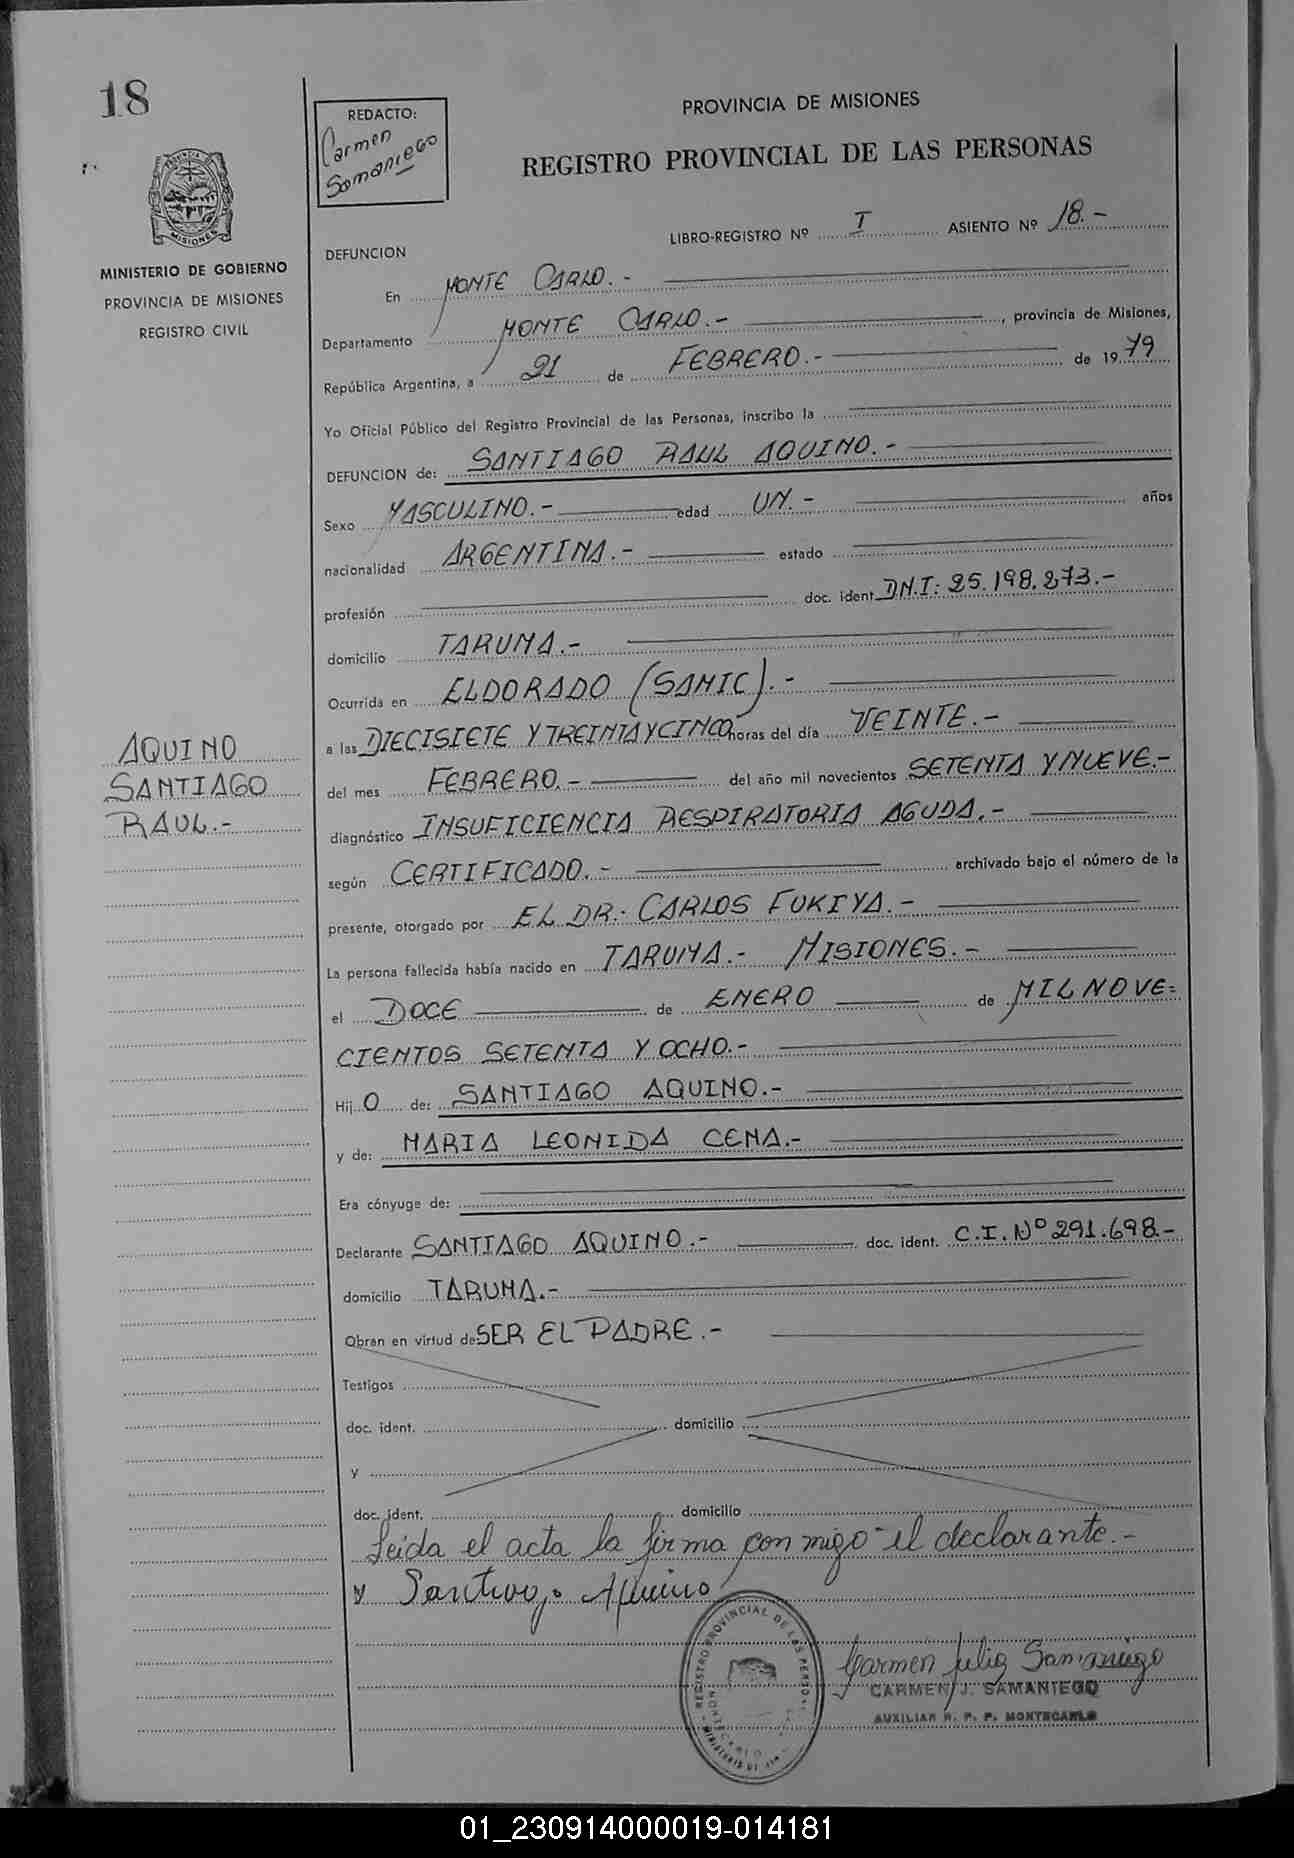 18
REDACTO:
Carmen
Samaniego
PROVINCIA DE MISIONES
REGISTRO PROVINCIAL DE LAS PERSONAS
MINISTERIO DE GOBIERNO
PROVINCIA DE MISIONES
REGISTRO CIVIL
LIBRO-REGISTRO Nº I ASIENTO Nº 18.-
DEFUNCION
En MONTE CARLO.-
Departamento MONTE CARLO.- , provincia de Misiones,
República Argentina, a 21 de FEBRERO.- de 1979
Yo Oficial Público del Registro Provincial de las Personas, inscribo la
DEFUNCION de: SANTIAGO RAUL AQUINO.-
Sexo MASCULINO.- edad UN.- años
nacionalidad ARGENTINA.- estado
profesión doc. ident. D.N.I: 25.198.273.-
domicilio TARUMA.-
Ocurrida en ELDORADO (SAMIC).-
a las DIECISIETE Y TREINTA Y CINCO horas del día VEINTE.-
del mes FEBRERO.- del año mil novecientos SETENTA Y NUEVE.-
diagnóstico INSUFICIENCIA RESPIRATORIA AGUDA.-
según CERTIFICADO.- archivado bajo el número de la
presente, otorgado por EL DR.- CARLOS FUKIYA.-
La persona fallecida había nacido en TARUMA.- MISIONES.-
el DOCE de ENERO de MIL NOVE=
CIENTOS SETENTA Y OCHO.-
Hij O de: SANTIAGO AQUINO.-
y de: MARIA LEONIDA CENA.-
Era cónyuge de:
Declarante SANTIAGO AQUINO.- doc. ident. C.I. Nº 291.698.-
domicilio TARUMA.-
Obran en virtud de SER EL PADRE.-
Testigos
doc. ident. domicilio
y
doc. ident. domicilio
Leida el acta la firma con migo el declarante.-
y Santiago Aquino
AQUINO
SANTIAGO
RAUL.-
REGISTRO PROVINCIAL DE LAS PERSO
Carmen Julia Samaniego
CARMEN J. SAMANIEGO
AUXILIAR R. P. P. MONTECARLO
01_230914000019-014181